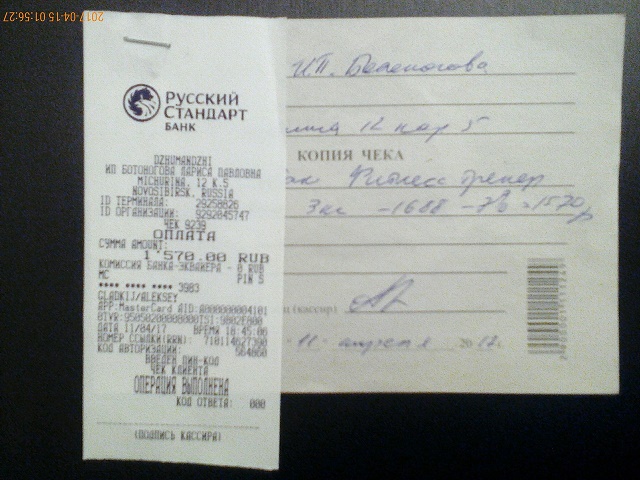 2017-04-15 01:56:27
РУССКИЙ
СТАНДАРТ
БАНК
DZHUMANDZHI
ИП БОТОНОГОВА ЛАРИСА ПАВЛОВНА
MICHURINA, 12 K.5
NOVOSIBIRSK, RUSSIA
ID ТЕРМИНАЛА: 29258826
ID ОРГАНИЗАЦИИ: 9292045747
ЧЕК 9239
ОПЛАТА
СУММА AMOUNT:
1'570.00 RUB
КОМИССИЯ БАНКА-ЭКВАЙЕРА - 0 RUB
MC PIN S
**** **** **** 3983
GLADKIJ/ALEKSEY
APP:MasterCard AID:A000000004101
ДАТА 11/04/17 ВРЕМЯ 18:45:06
НОМЕР ССЫЛКИ(RRN): 710114627390
КОД АВТОРИЗАЦИИ: 564860
ВВЕДЕН ПИН-КОД
ЧЕК КЛИЕНТА
ОПЕРАЦИЯ ВЫПОЛНЕНА
КОД ОТВЕТА: 000
(ПОДПИСЬ КАССИРА)
ИП.
12 кор 5
КОПИЯ ЧЕКА
Фитнес тренер
3кг -1688 -7% =1570р
(кассир)
11 апреля 2017г.